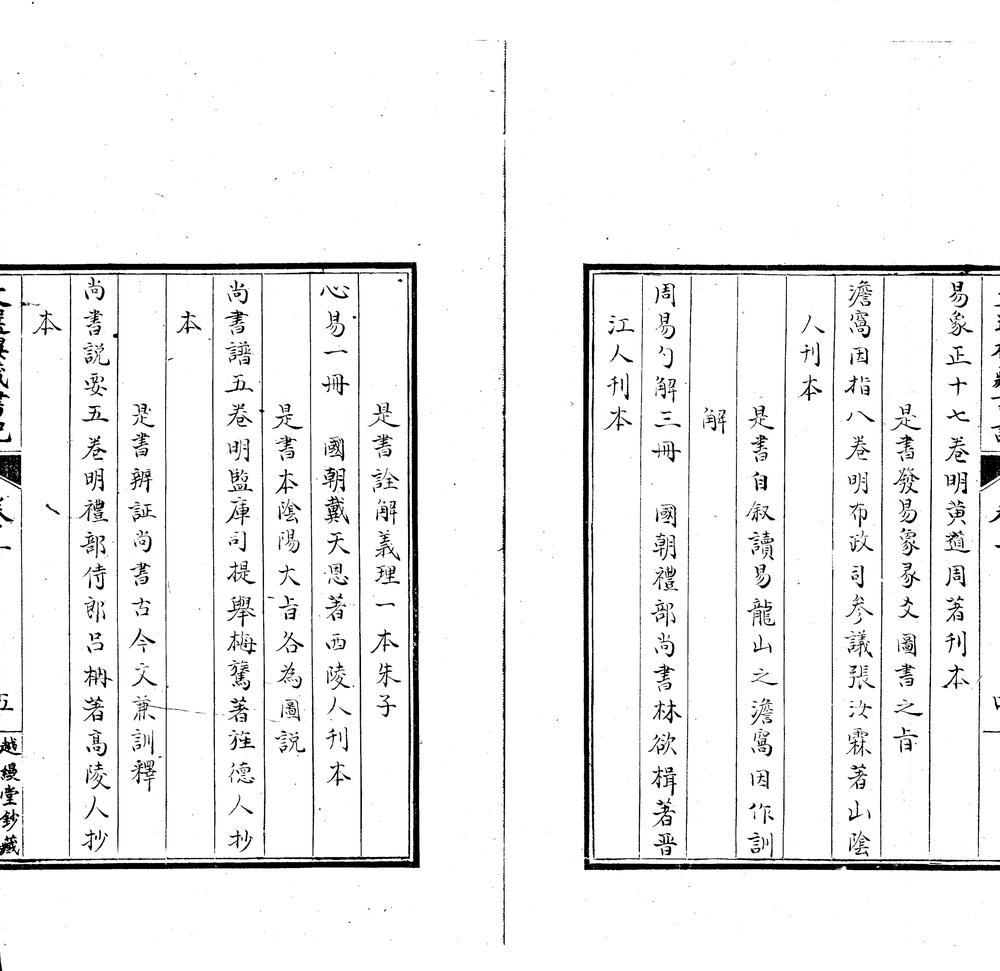 易象正十七卷明黄道周著刊本
是書發易象彖爻圖書之旨
澹窩因指八卷明布政司参議張汝霖著山陰
人刊本
是書自叙讀易龍山之澹窩因作訓
解
周易勺解三冊　國朝禮部尚書林欲楫著晋
江人刊本
是書詮解義理一本朱子
心易一冊　國朝戴天恩著西陵人刊本
是書本陰陽大旨各為圖説
尚書譜五卷明監庫司提舉梅鷟著旌德人抄
本
是書辨証尚書古今文兼訓釋
尚書説要五卷明禮部侍郎吕柟著高陵人抄
本
越縵堂鈔藏